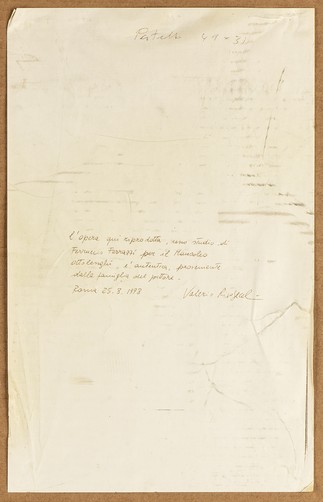 49 x 31
L'opera qui riprodotta, uno studio di
Ferruccio Ferrazzi per il Mausoleo
Ottolenghi, è autentica, proveniente
dalla famiglia del pittore.
Roma 25.3.1998 Valerio Rivosecchi